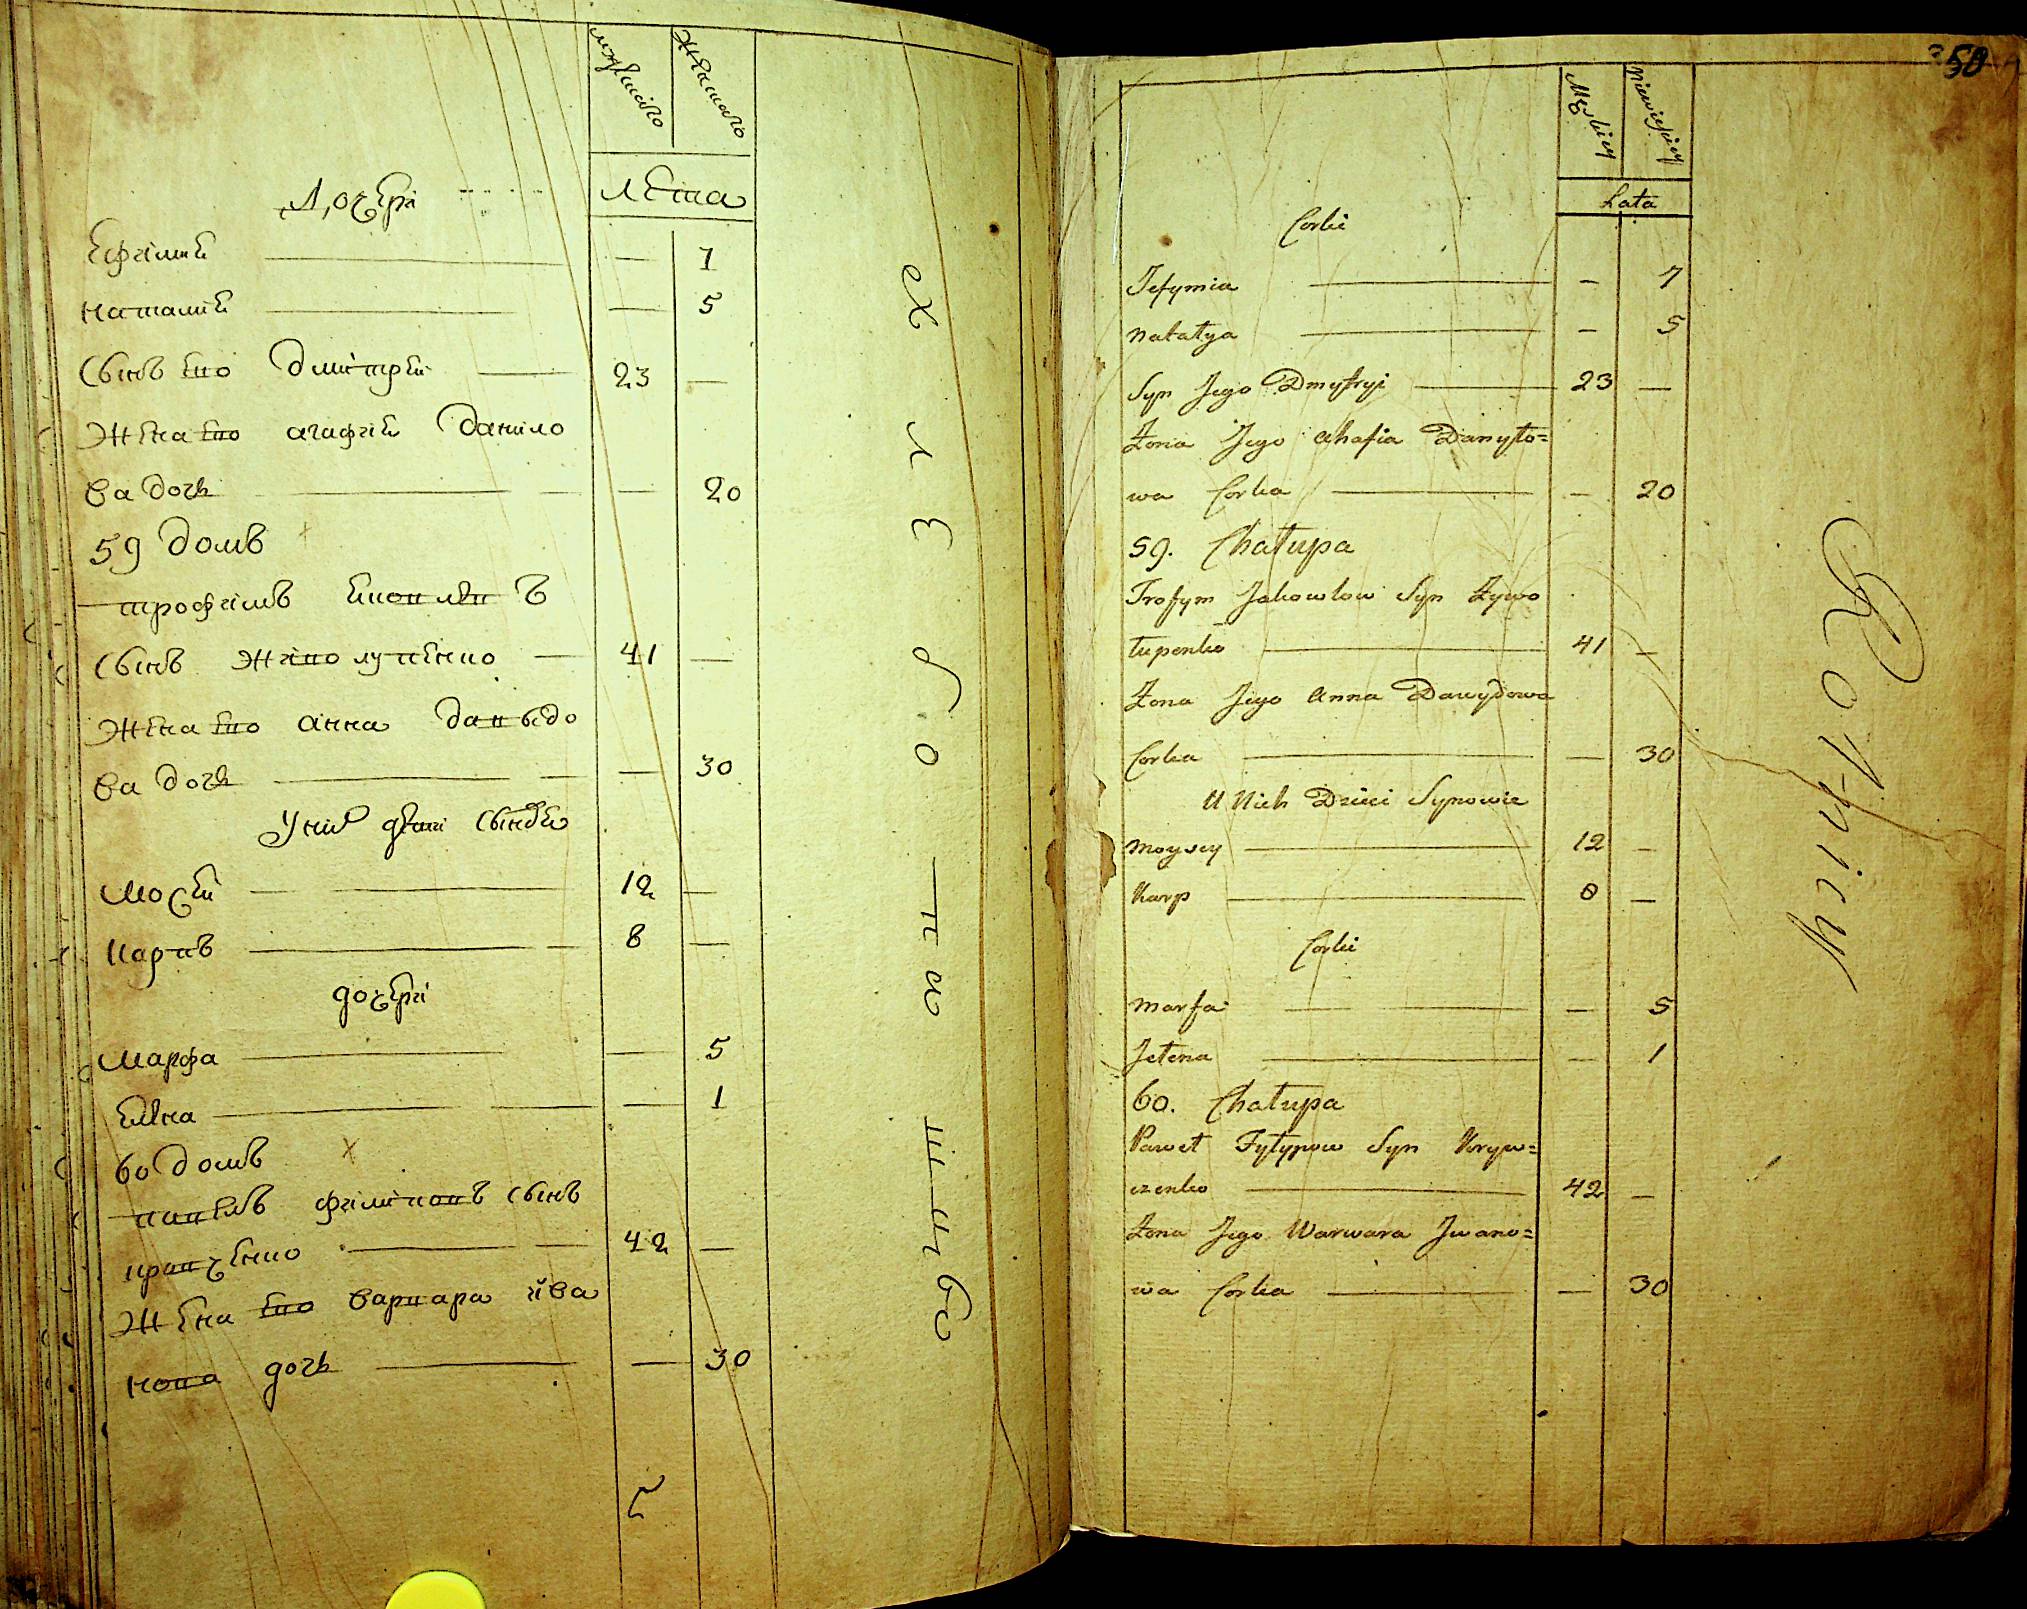 мужеского женского
лета
Дочери
Ефимия — 7
Наталия — 5
Сынъ его Дмитрей — 23 —
Жена его Агафия Данило
ва дочь — — 20
59 домъ
Трофимъ Яковлевъ
сынъ Живолупенко — 41 —
Жена его Анна Давыдо
ва дочь — — 30
У них дети сыновя
Мосей — 12 —
Карпъ — 8 —
дочери
Марфа — — 5
Елена — — 1
60 домъ
Павелъ Филиповъ сынъ
Кравченко — 42 —
Жена его Варвара Ива
нова дочь — — 30
58
Męskiey Niewieskiey
Lata
Corki
Jefymia — — 7
Natałya — — 5
Syn Jego Dmytryi — 23 —
Żona Jego Ahafia Danyło=
wa Corka — — 20
59. Chałupa
Trofym Jakowlow Syn Żywo
łupenko — 41 —
Żona Jego Anna Dawydowa
Corka — — 30
U Nich Dzieci Synowie
Moysey — 12 —
Karp — 8 —
Corki
Marfa — — 5
Jełena — — 1
60. Chałupa
Paweł Fyłypow Syn Kryw=
czenko — 42 —
Żona Jego Warwara Jwano=
wa Corka — — 30